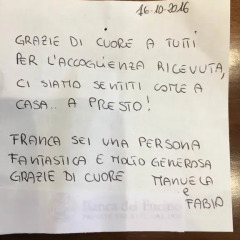 16-10-2016
GRAZIE DI CUORE A TUTTI
PER L'ACCOGLIENZA RICEVUTA,
CI SIAMO SENTITI COME A
CASA.. A PRESTO!
FRANCA SEI UNA PERSONA
FANTASTICA E MOLTO GENEROSA
GRAZIE DI CUORE MANUELA
e
FABIO
Banca del Fucino